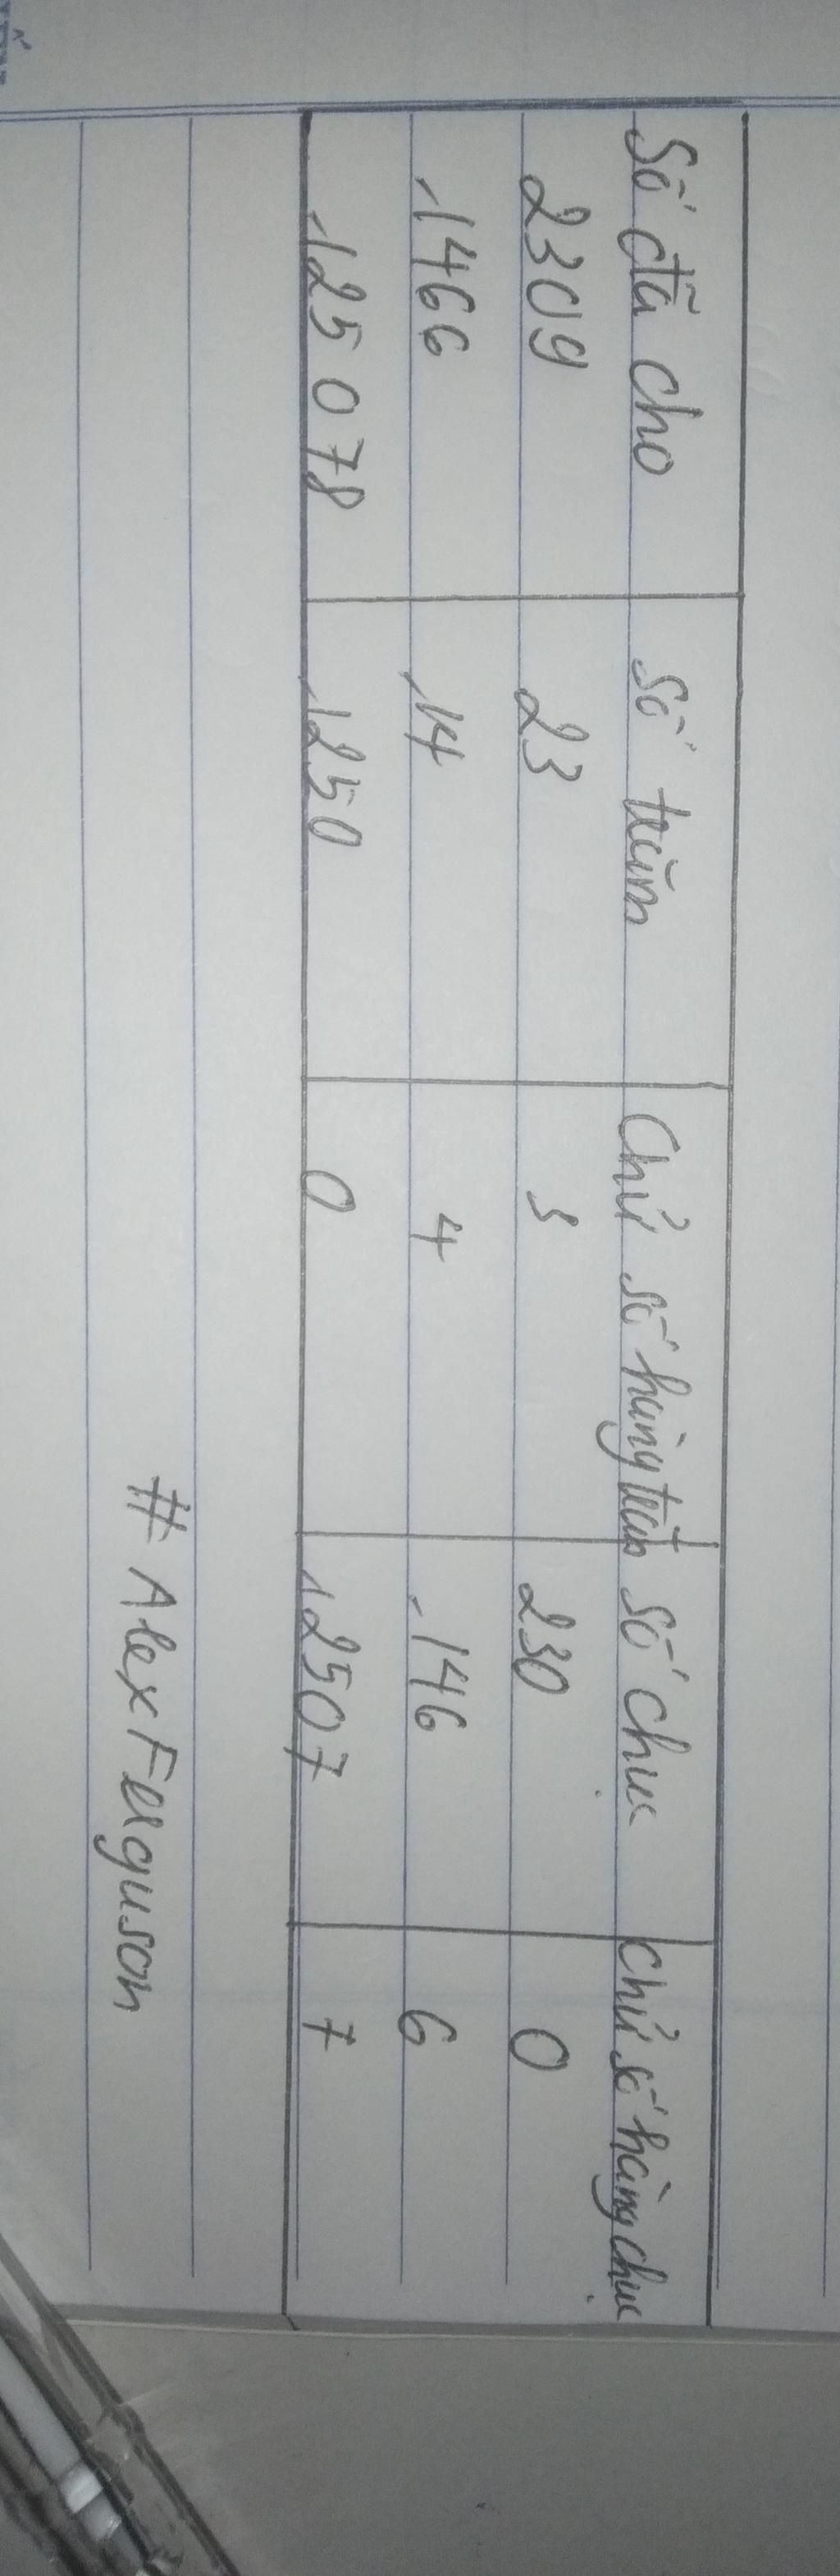 Số đã cho Số trăm Chữ số hàng trăm Số chục Chữ số hàng chục
2309 23 3 230 0
1466 14 4 146 6
125078 1250 0 12507 7
# Alex Ferguson